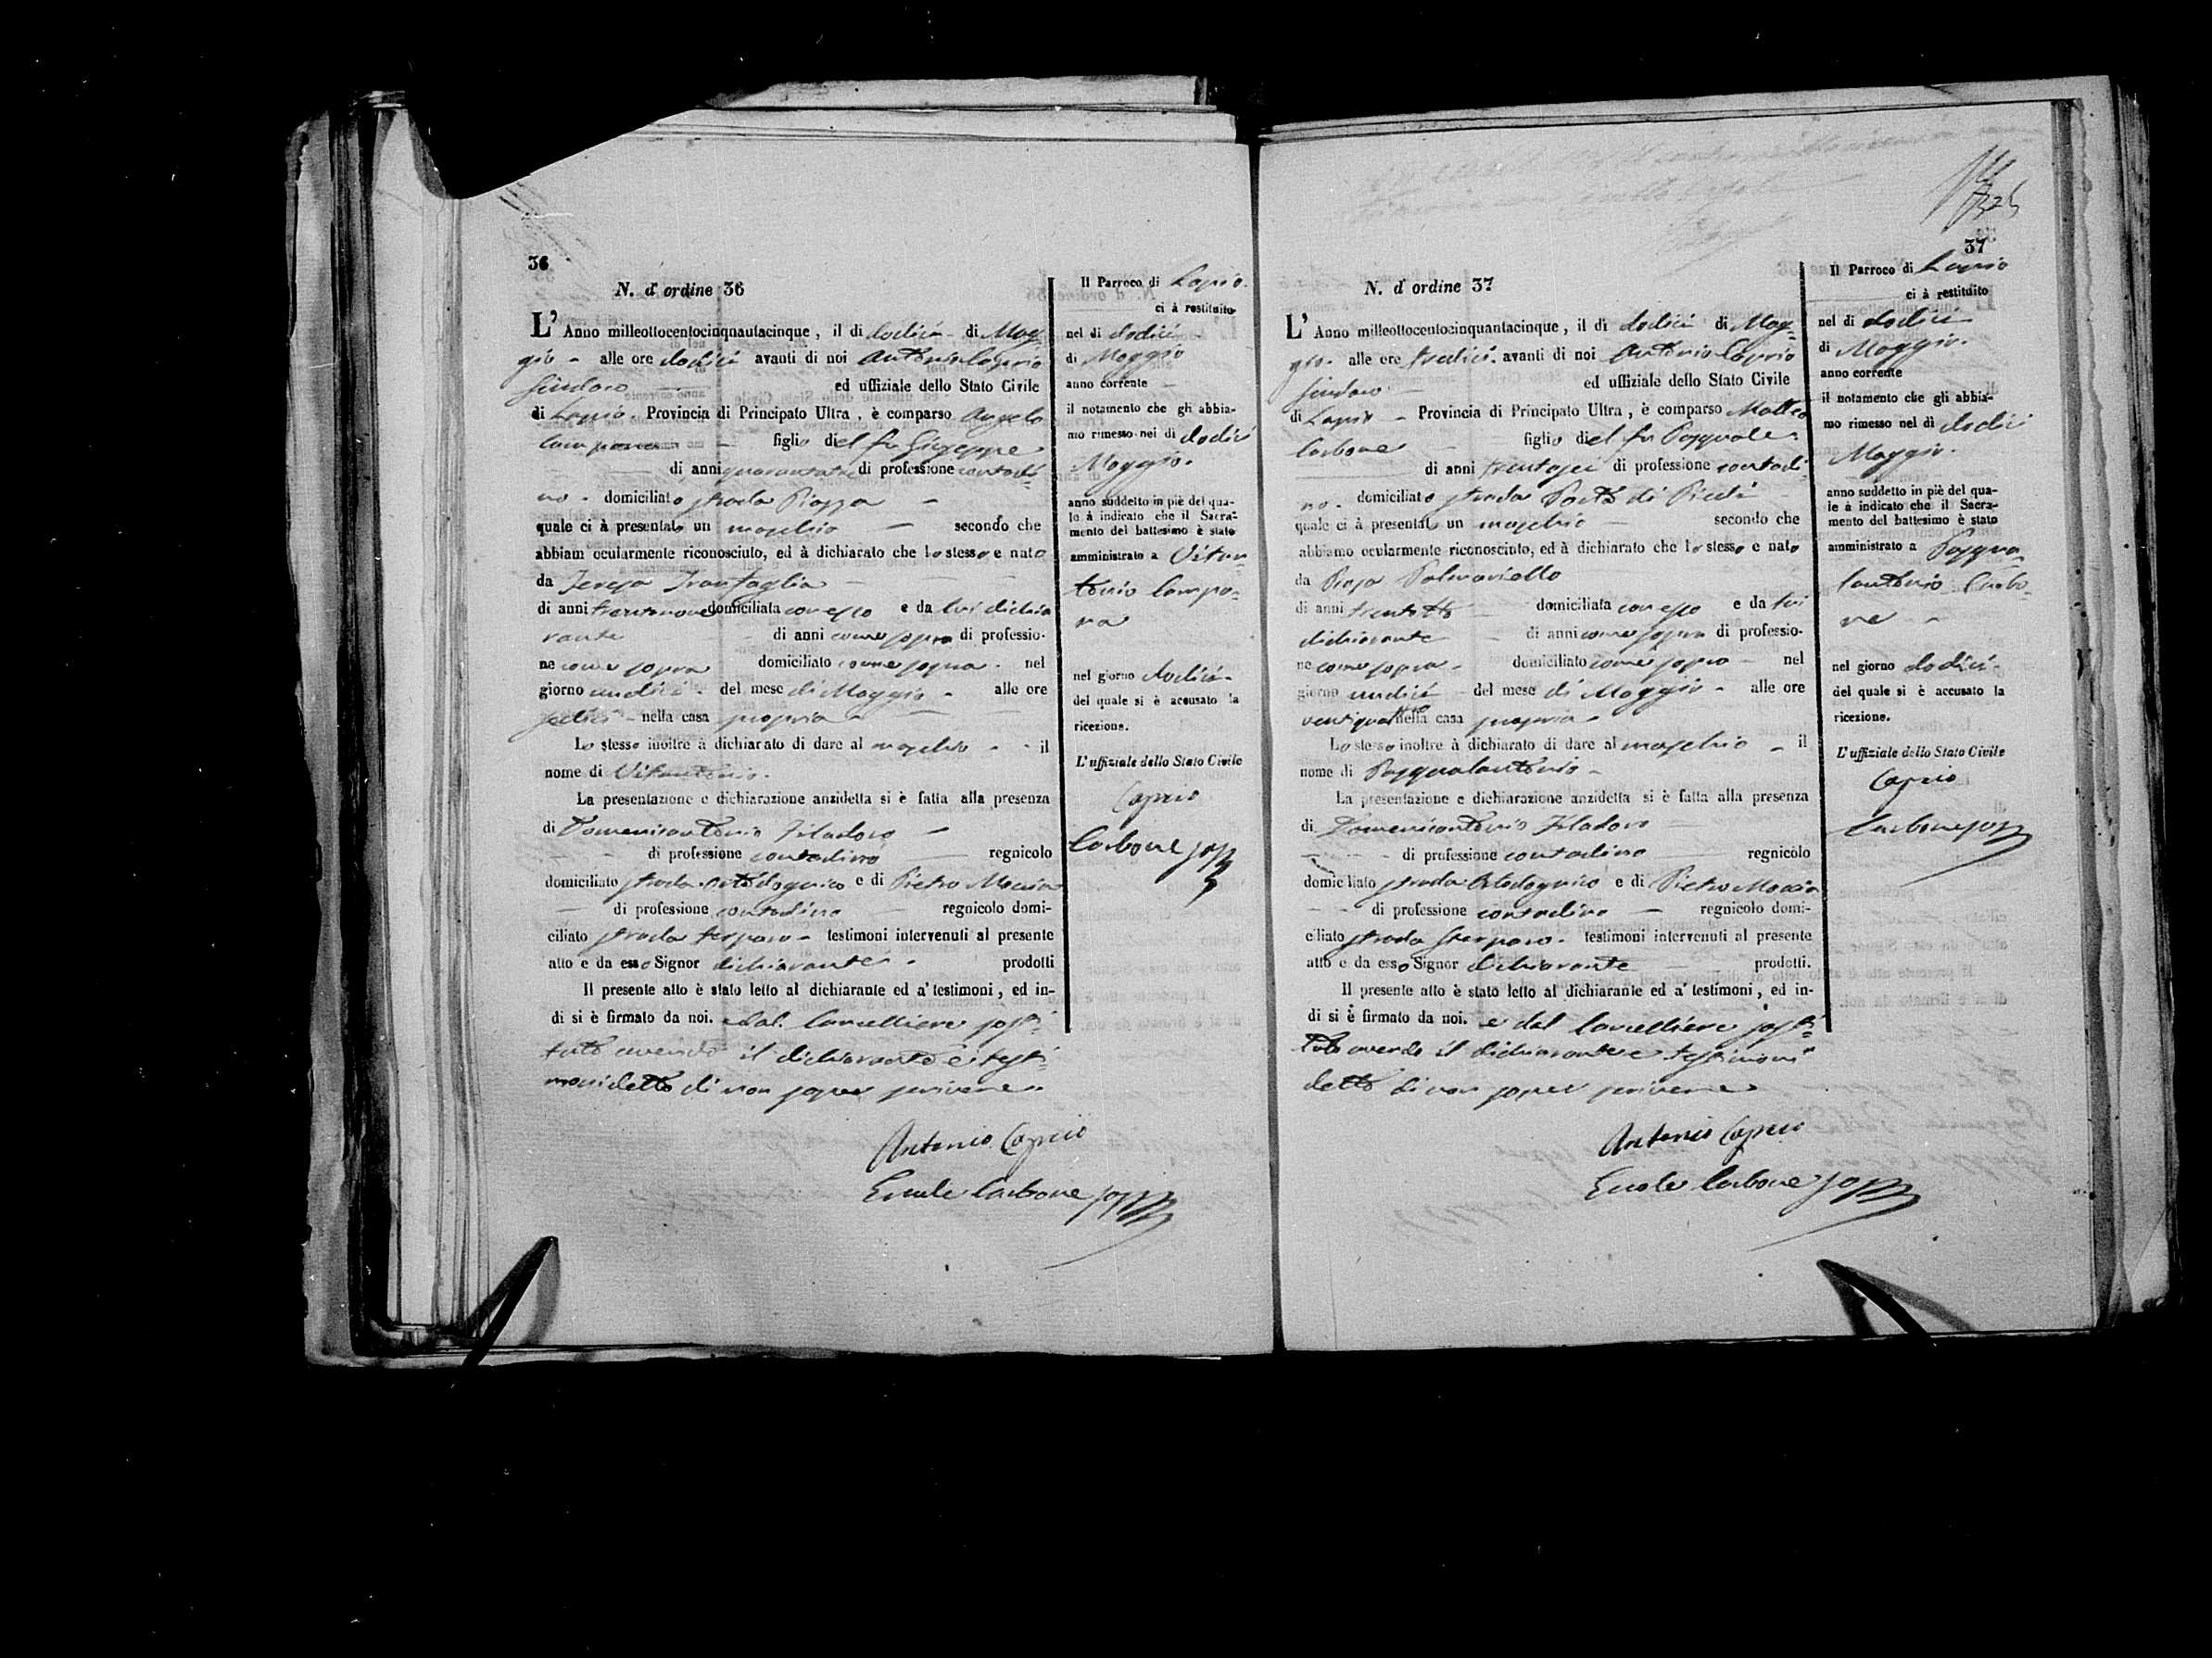 36
N. d' ordine 36
L' Anno milleottocentocinquantacinque, il di dodici di Mag-
gio alle ore dodici avanti di noi Antonio Caprio
Sindaco ed uffiziale dello Stato Civile
di Lapio Provincia di Principato Ultra, è comparso Angelo
Campana figlio del fu Giuseppe
di anni quaranta di professione contadi-
no domiciliato strada Piazza
quale ci à presentato un maschio secondo che
abbiam ocularmente riconosciuto, ed à dichiarato che lo stesso e nato
da Teresa Trantaglia
di anni trentanove domiciliata con esso e da lui dichia
rante di anni come sopra di professio-
ne come sopra domiciliato come sopra nel
giorno undici del mese di Maggio alle ore
sedici nella casa propria
Lo stesso inoltre à dichiarato di dare al maschio il
nome di Vitantonio
La presentazione e dichiarazione anzidetta si è fatta alla presenza
di Domenicantonio Filadoro
di professione contadino regnicolo
domiciliato strada e di Pietro Moccia
di professione contadino regnicolo domi-
ciliato strada testimoni intervenuti al presente
atto e da esso Signor dichiarante prodotti
Il presente atto è stato letto al dichiarante ed a' testimoni, ed in-
di si è firmato da noi. e dal Cancelliere sosti-
tuto avendo il dichiarante e i testi-
moni detto di non saper scrivere
Antonio Caprio
Ercole Carbone
Il Parroco di Lapio
ci à restituito
nel di dodici
di Maggio
anno corrente
il notamento che gli abbia-
mo rimesso nei di dodici
Maggio
anno suddetto in piè del qua-
le à indicato che il Sacra-
mento del battesimo è stato
amministrato a Vitan-
tonio Campa-
na
nel giorno dodici
del quale si è accusato la
ricezione.
L' uffiziale dello Stato Civile
Caprio
Carbone
37
N. d' ordine 37
L' Anno milleottocentocinquantacinque, il di dodici di Mag-
gio alle ore tredici avanti di noi Antonio Caprio
Sindaco ed uffiziale dello Stato Civile
di Lapio Provincia di Principato Ultra, è comparso Matteo
Carbone figlio del fu Pasquale
di anni trentasei di professione contadi-
no domiciliato strada Porta di
quale ci à presentato un maschio secondo che
abbiamo ocularmente riconosciuto, ed à dichiarato che lo stesso e nato
da Rosa Palmariello
di anni trentotto domiciliata con esso e da lui
dichiarante di anni come sopra di professio-
ne come sopra domiciliato come sopra nel
giorno undici del mese di Maggio alle ore
ventiquattro nella casa propria
Lo stesso inoltre à dichiarato di dare al maschio il
nome di Pasqualantonio
La presentazione e dichiarazione anzidetta si è fatta alla presenza
di Domenicantonio Filadoro
di professione contadino regnicolo
domiciliato strada e di Pietro Moccia
di professione contadino regnicolo domi-
ciliato strada Sterparo testimoni intervenuti al presente
atto e da esso Signor dichiarante prodotti.
Il presente atto è stato letto al dichiarante ed a' testimoni, ed in-
di si è firmato da noi. e dal Cancelliere sosti-
tuto avendo il dichiarante e testimoni
detto di non saper scrivere
Antonio Caprio
Ercole Carbone
Il Parroco di Lapio
ci à restituito
nel di dodici
di Maggio
anno corrente
il notamento che gli abbia-
mo rimesso nel di dodici
Maggio
anno suddetto in piè del qua-
le à indicato che il Sacra-
mento del battesimo è stato
amministrato a Pasqua-
lantonio Carbo-
ne
nel giorno dodici
del quale si è accusato la
ricezione.
L' uffiziale dello Stato Civile
Caprio
Carbone